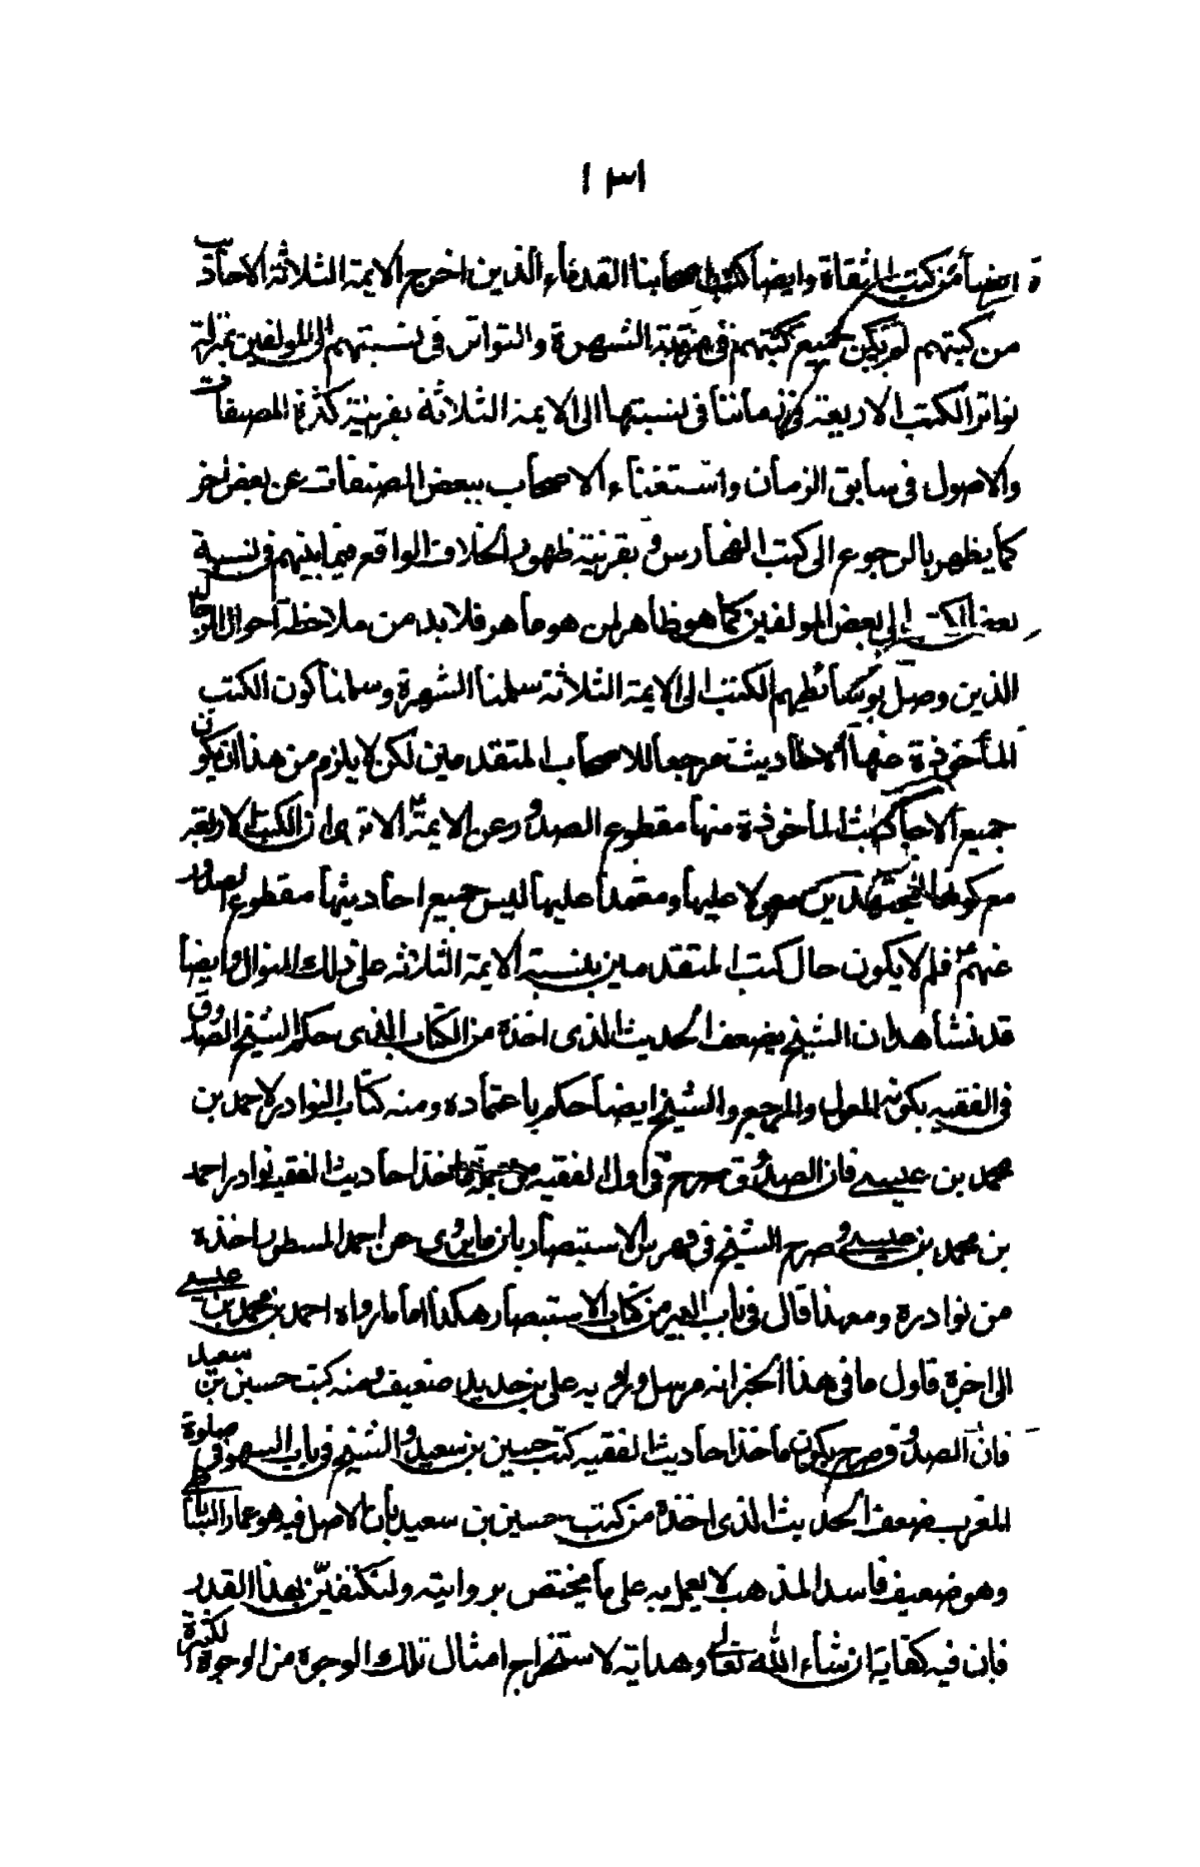 ١٣١
ايضاً من كتب الثقاة وايضاً كتب اصحابنا القدماء الذين اخرج الايمة الثلاثة الاحاديث
من كتبهم لم يكن جميع كتبهم في مرتبة الشهرة والتواتر في نسبتهم الى المولفين بمنزلة
تواتر الكتب الاربعة في زماننا في نسبتها الى الايمة الثلاثة بقرينة كثرة المصنفات
والاصول في سابق الزمان واستغناء الاصحاب ببعض المصنفات عن بعض اخر
كما يظهر بالرجوع الى كتب الفهارس وبقرينة ظهور الخلاف الواقع فيما بينهم في نسبة
بعض الكتب الى بعض المولفين كما هو ظاهر لمن هو ماهر فلا بد من ملاحظة احوال الرجال
الذين وصل بوسائطهم الكتب الى الايمة الثلاثة سلمنا الشهرة وسلمنا كون الكتب
المأخوذة منها الاحاديث مرجعا للاصحاب المتقدمين لكن لا يلزم من هذا ان يكون
جميع الاحاديث المأخوذة منها مقطوع الصدور عن الايمةؑ الا ترى ان الكتب الاربعة
مع كونها للمجتهدين معولا عليها ومعتمدا عليها ليس جميع احاديثها مقطوع الصدور
عنهمؑ فلم لا يكون حال كتب المتقدمين بنسبة الايمة الثلاثه على ذلك المنوال وايضاً
قد نشاهد ان الشيخ يضعف الحديث الذى اخذه من الكتاب الذى حكم الشيخ الصدوق
فى الفقيه بكونه المعول والمرجع والشيخ ايضا حكم باعتماده ومنه كتاب النوادر لاحمد بن
محمد بن عيسى فان الصدوق صرح في اول الفقيه من جملة ماخذ احاديث الفقيه نوادر احمد
بن محمد بن عيسى وصرح الشيخ في فهرس الاستبصار بان ما يروى عن احمد المسطور اخذه
من نوادره ومعهذا قال فى باب البير من كتاب الاستبصار هكذا اما ما رواه احمد بن محمد بن عيسى
الى اخره فاول ما فى هذا الخبر انه مرسل وراويه على بن حديد ضعيف ومنه كتب حسين بن سعيد
فان الصدوق صرح بكون ماخذ احاديث الفقيه كتب حسين بن سعيد والشيخ في باب السهو في صلوة
المغرب ضعف الحديث الذى اخذه من كتب حسين بن سعيد بأن الاصل فيه هو عمار الساباطى
وهو ضعيف فاسد المذهب لا يعمل به على ما يختص بروايته ولنكتفين بهذا القدر
فان فيه كفاية ان شاء الله تعالى وهداية لاستخراج امثال تلك الوجوه من الوجوه الكثيرة